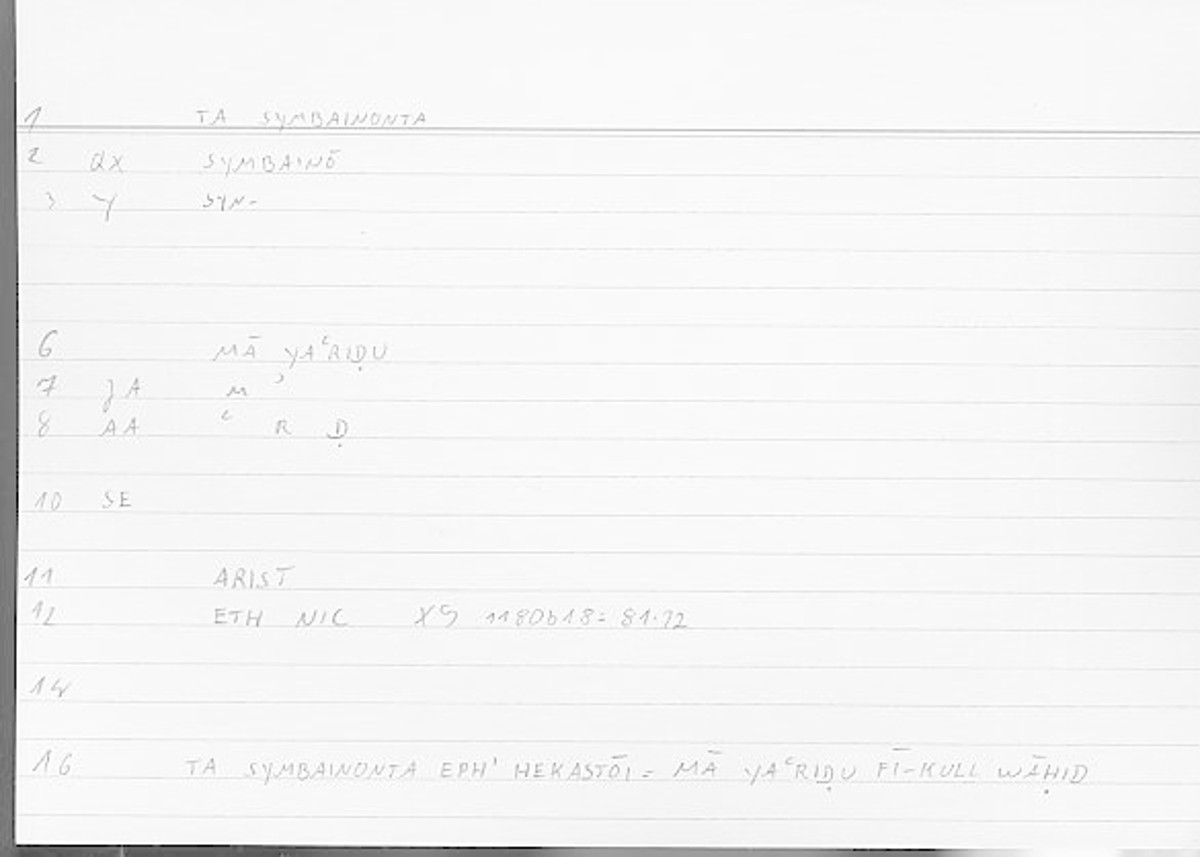 1 TA SYMBAINONTA
2 QX SYMBAINŌ
3 Y SYN-
6 MĀ YAʿRIḌU
7 JA M ʾ
8 AA ʿ R Ḍ
10 SE
11 ARIST
12 ETH NIC X5 1180b18= 81.12
14
16 TA SYMBAINONTA EPH' HEKASTŌI = MĀ YAʿRIḌU FĪ-KULL WĀḤID